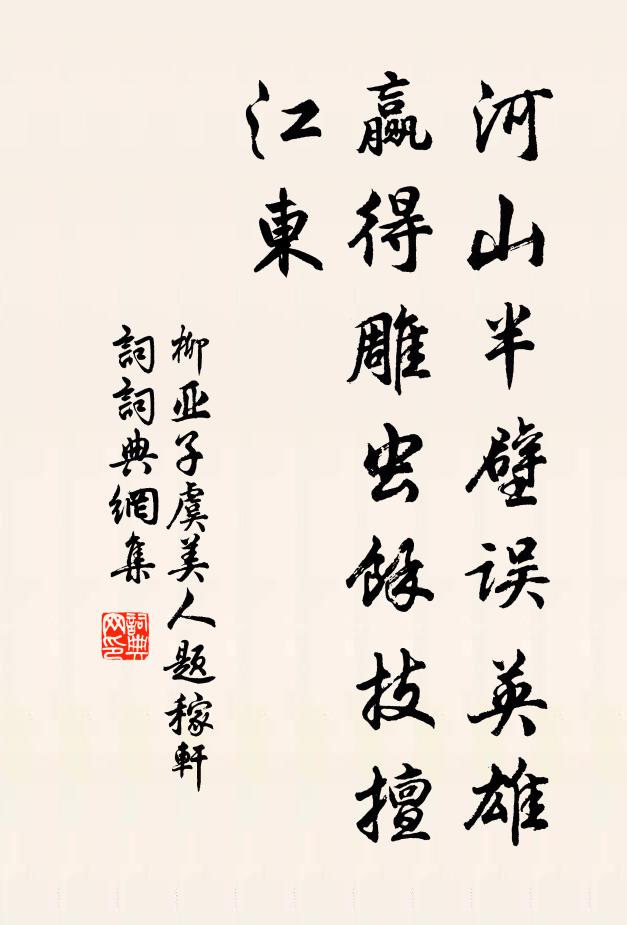 河山半壁误英雄
贏得雕虫餘技擅
江東
柳亚子虞美人题稼軒
詞詞典網集
詞典网印